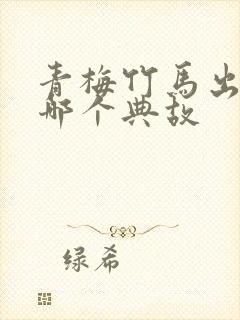 青梅竹马出
哪个典故
绿希